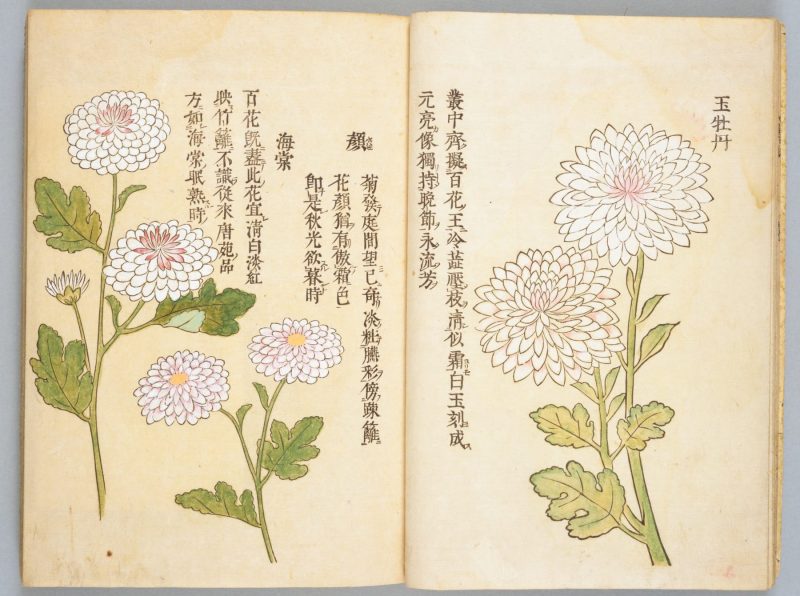 玉牡丹
叢中齊擬百花王冷蕋壓枝清似霜白玉刻成
元亮像獨持晚節永流芳
顏
菊發庭間望已奇淡粧勝彩傍踈籬
花顏猶有傲霜色
即是秋光欲暮時
海棠
百花既盡此花宜清白淡紅
映竹籬不識從來唐苑品
方如海棠眠熟時